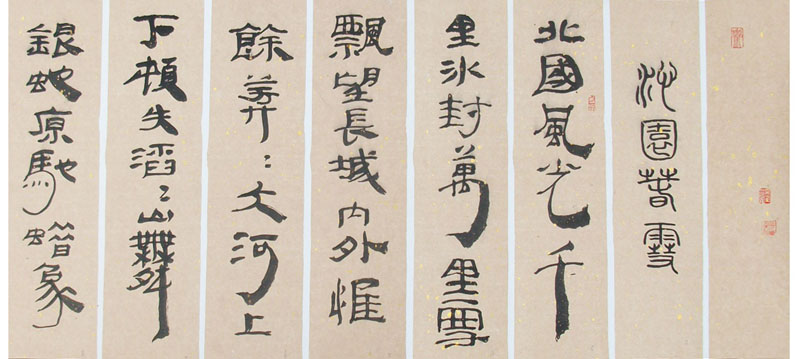 沁園春雪
北國風光千
里冰封萬里雪
飄望長城内外惟
餘莽〻大河上
下頓失滔〻山舞
銀蛇原馳蜡象